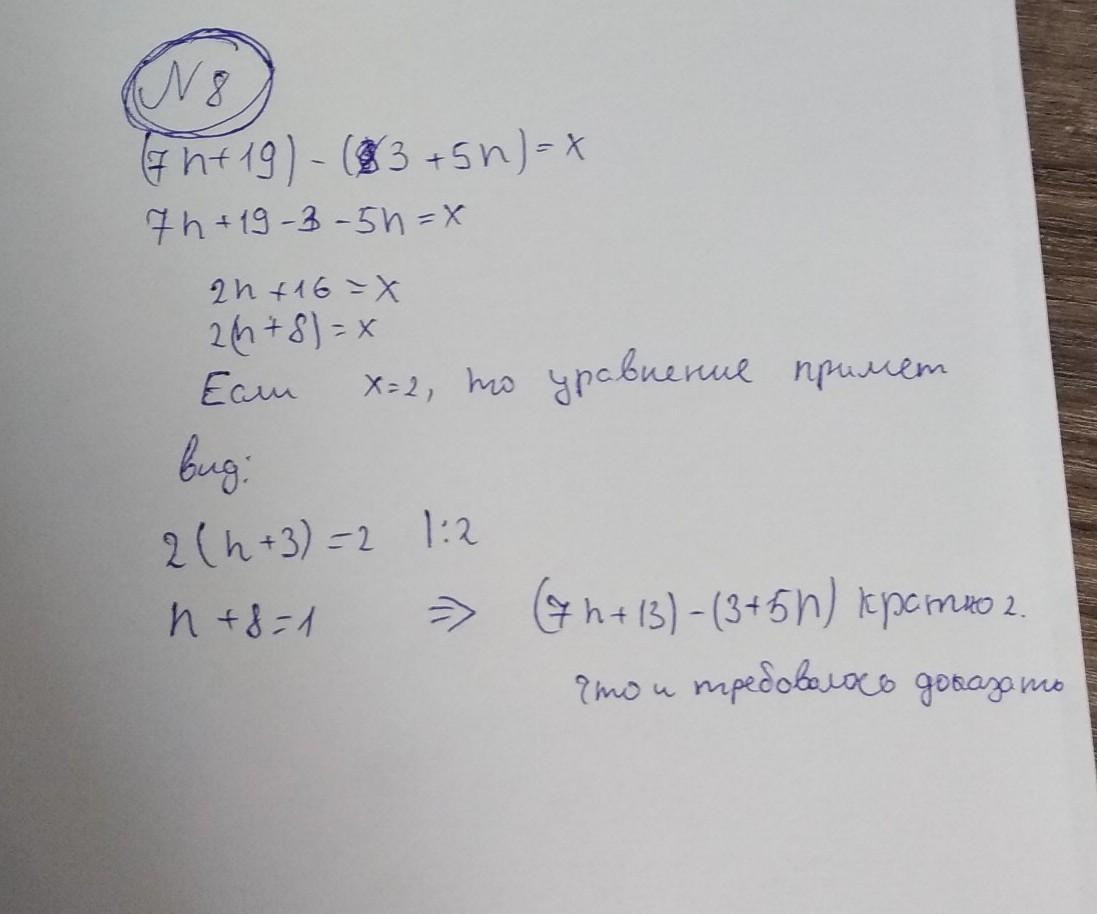 N 8
(7n+19) - (3 + 5n) = x
7n + 19 - 3 - 5n = x
2n + 16 = x
2(n + 8) = x
Если x = 2, то уравнение примет
вид:
2(n + 3) = 2 |:2
n + 8 = 1 ⇒ (7n + 13) - (3 + 5n) кратно 2.
что и требовалось доказать